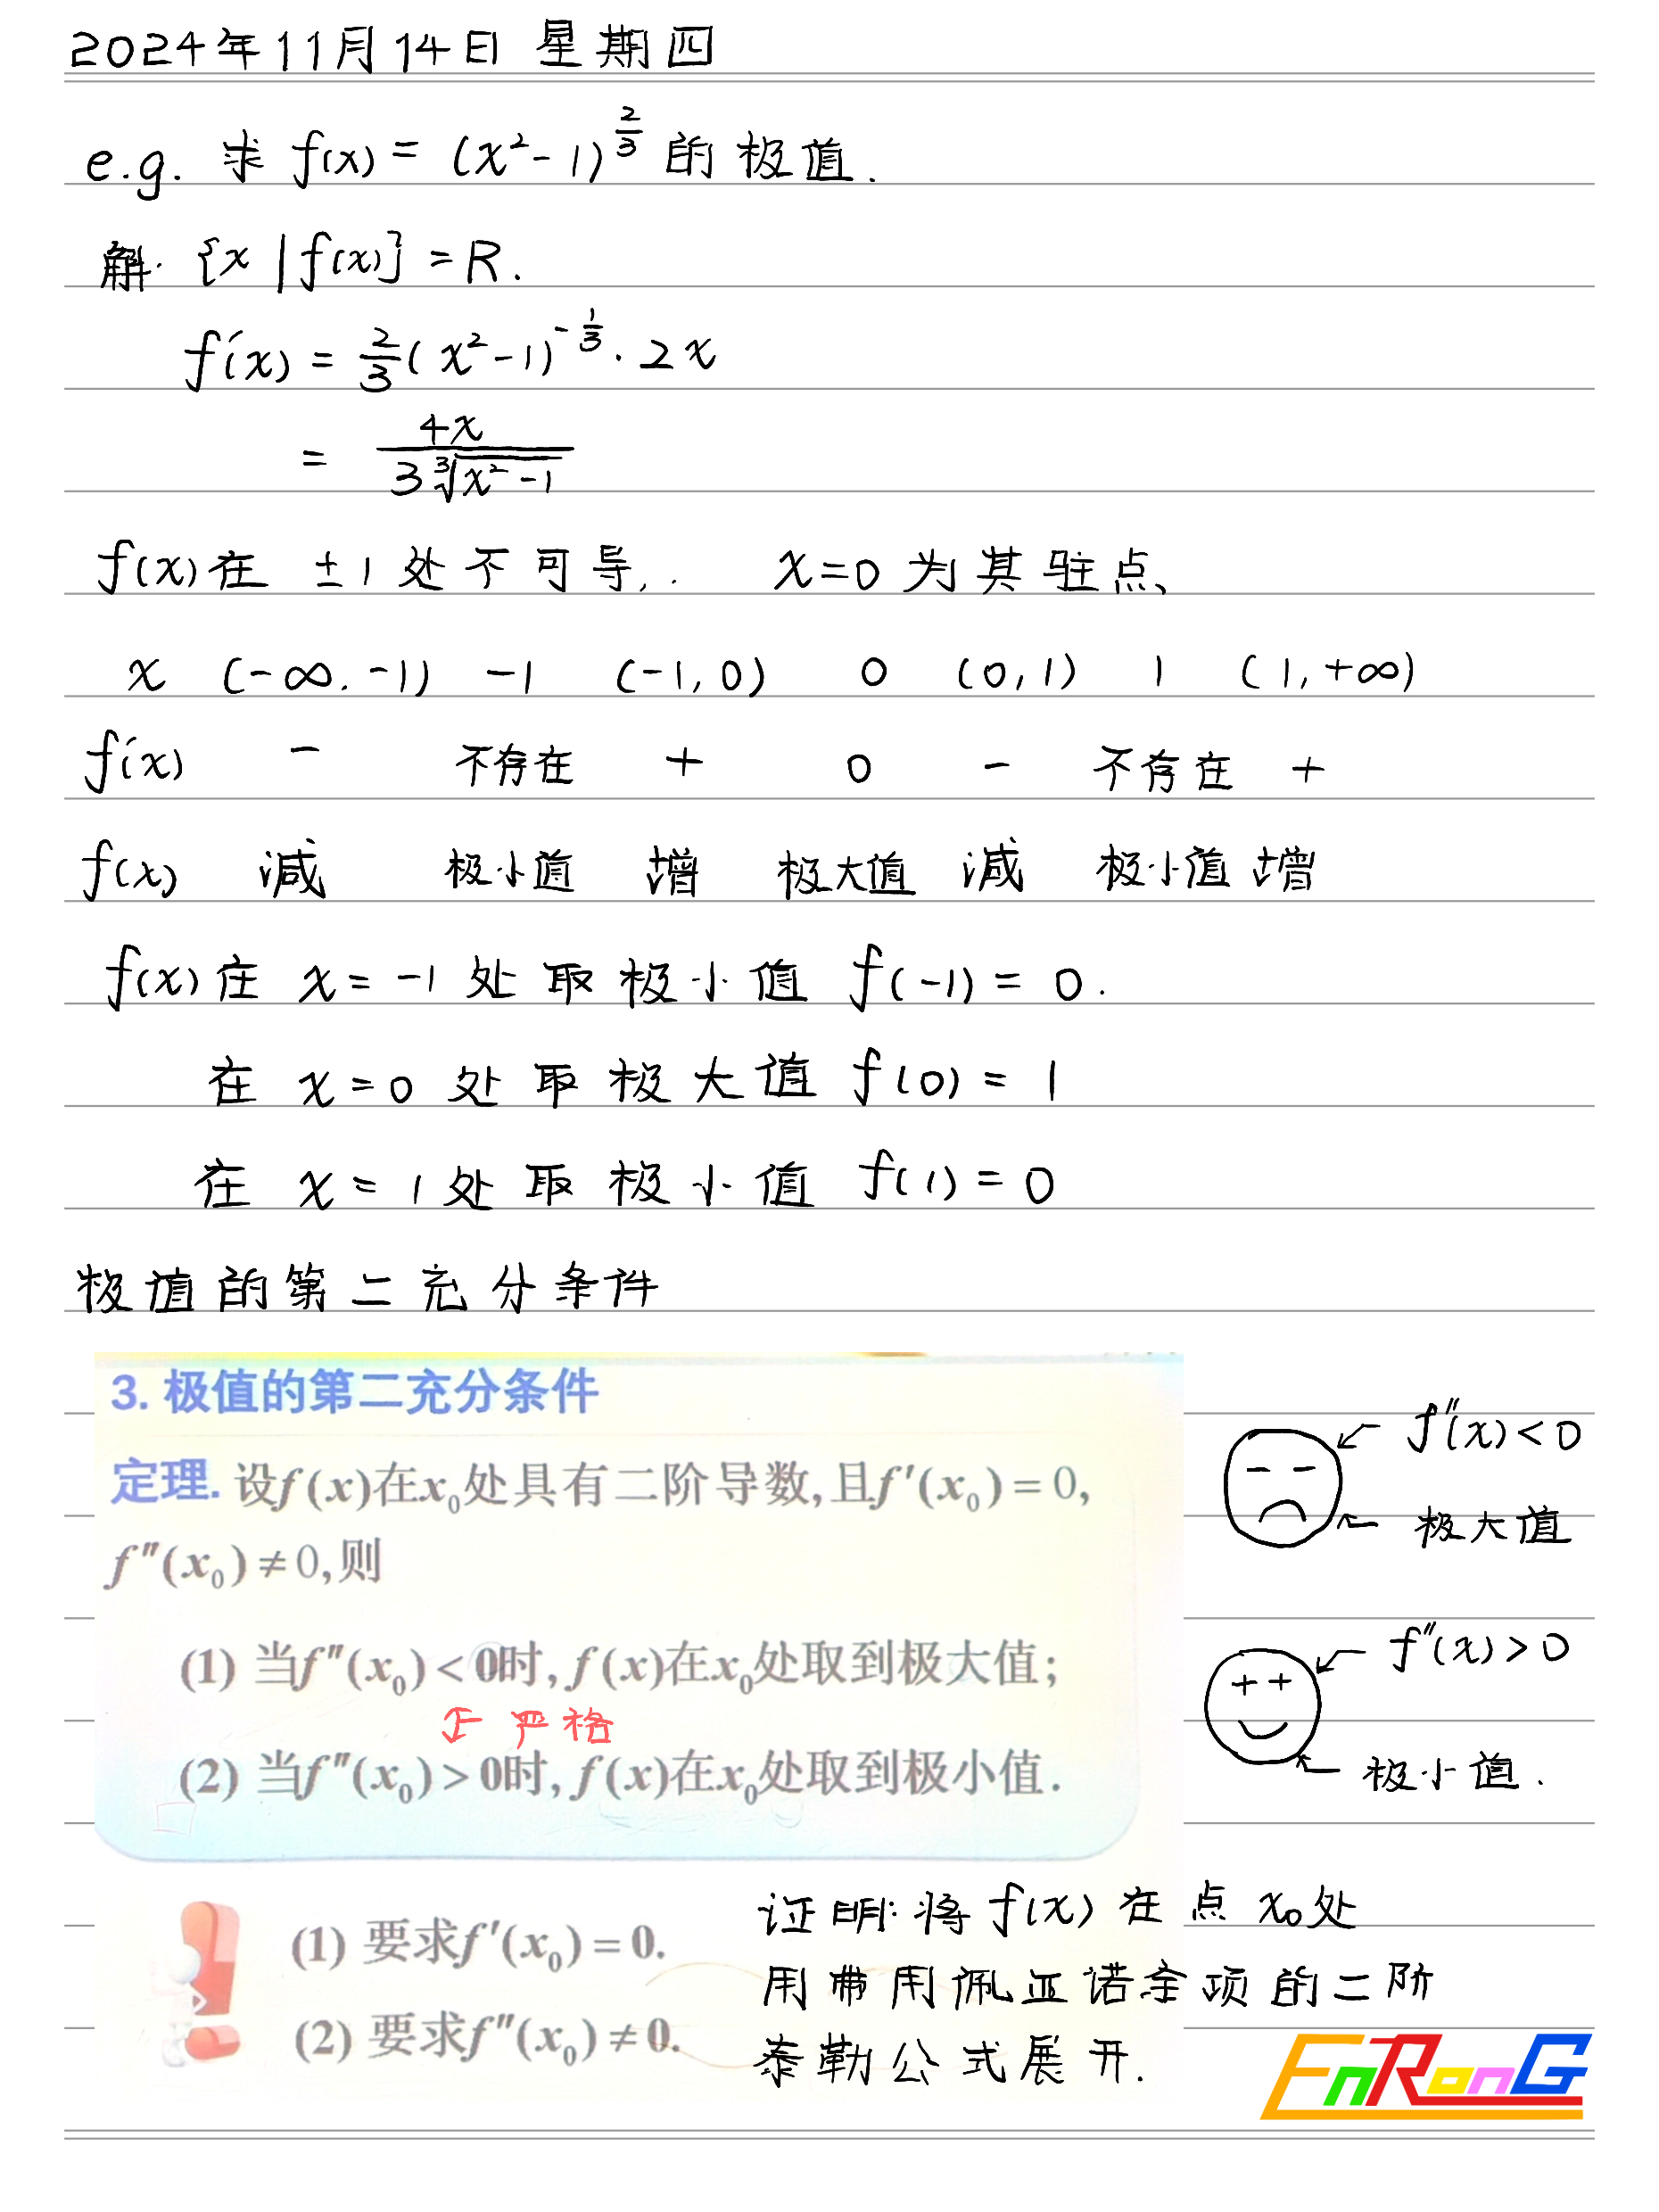 2024年11月14日 星期四
e.g. 求 f(x) = (x²-1)^{2/3} 的极值.
解. {x | f(x)} = R.
f'(x) = 2/3 (x²-1)^{-1/3} · 2x
= 4x / 3∛(x²-1)
f(x)在 ±1 处不可导, x=0 为其驻点、
x (-∞, -1) -1 (-1, 0) 0 (0, 1) 1 (1, +∞)
f'(x) - 不存在 + 0 - 不存在 +
f(x) 减 极小值 增 极大值 减 极小值 增
f(x)在 x = -1 处取极小值 f(-1) = 0.
在 x = 0 处取极大值 f(0) = 1
在 x = 1 处取极小值 f(1) = 0
极值的第二充分条件
3. 极值的第二充分条件
定理. 设f(x)在x₀处具有二阶导数,且f'(x₀) = 0,
f''(x₀) ≠ 0,则
(1) 当f''(x₀) < 0时, f(x)在x₀处取到极大值;
← 严格
(2) 当f''(x₀) > 0时, f(x)在x₀处取到极小值.
f''(x) < 0
极大值
f''(x) > 0
++
极小值.
(1) 要求f'(x₀) = 0.
(2) 要求f''(x₀) ≠ 0.
证明: 将 f(x) 在点 x₀ 处
用带用佩亚诺余项的二阶
泰勒公式展开.
EnRonG